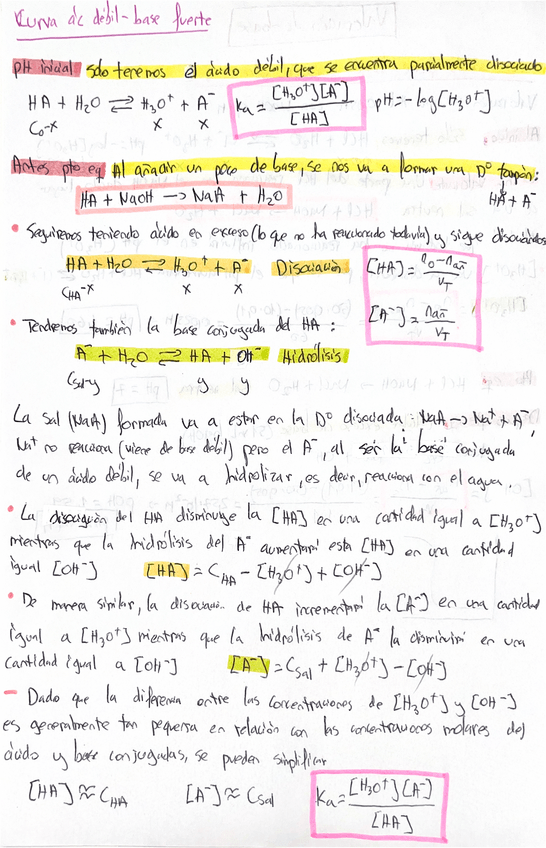 Curva ác débil-base fuerte
pH inicial Sólo tenemos el ácido débil, que se encuentra parcialmente disociado
HA + H₂O ⇌ H₃O⁺ + A⁻ Ka = [H₃O⁺][A⁻] / [HA] pH = -log[H₃O⁺]
C₀-x x x
Antes pto eq Al añadir un poco de base, se nos va a formar una Dº tampón:
HA + NaOH → NaA + H₂O HA + A⁻
• Seguiremos teniendo ácido en exceso (lo que no ha reaccionado todavía) y sigue disociándos
HA + H₂O ⇌ H₃O⁺ + A⁻ Disociación [HA] = n₀ - nañ / VT
CHA-x x x [A⁻] = nañ / VT
• Tendremos también la base conjugada del HA:
A⁻ + H₂O ⇌ HA + OH⁻ Hidrólisis
Csal-y y y
La sal (NaA) formada va a estar en la Dº disociada: NaA → Na⁺ + A⁻,
Na⁺ no reacciona (viene de base débil) pero el A⁻, al ser la base conjugada
de un ácido débil, se va a hidrolizar, es decir, reacciona con el agua.
• La disociación del HA disminuye la [HA] en una cantidad igual a [H₃O⁺]
mientras que la hidrólisis del A⁻ aumentará esta [HA] en una cantidad
igual [OH⁻] [HA] = CHA - [H₃O⁺] + [OH⁻]
• De manera similar, la disociación de HA incrementará la [A⁻] en una cantidad
igual a [H₃O⁺] mientras que la hidrólisis de A⁻ la disminuirá en una
cantidad igual a [OH⁻] [A⁻] = Csal + [H₃O⁺] - [OH⁻]
- Dado que la diferencia entre las concentraciones de [H₃O⁺] y [OH⁻]
es generalmente tan pequeña en relación con las concentraciones molares del
ácido y base conjugadas, se pueden simplificar
[HA] ≈ CHA [A⁻] ≈ Csal Ka = [H₃O⁺][A⁻] / [HA]